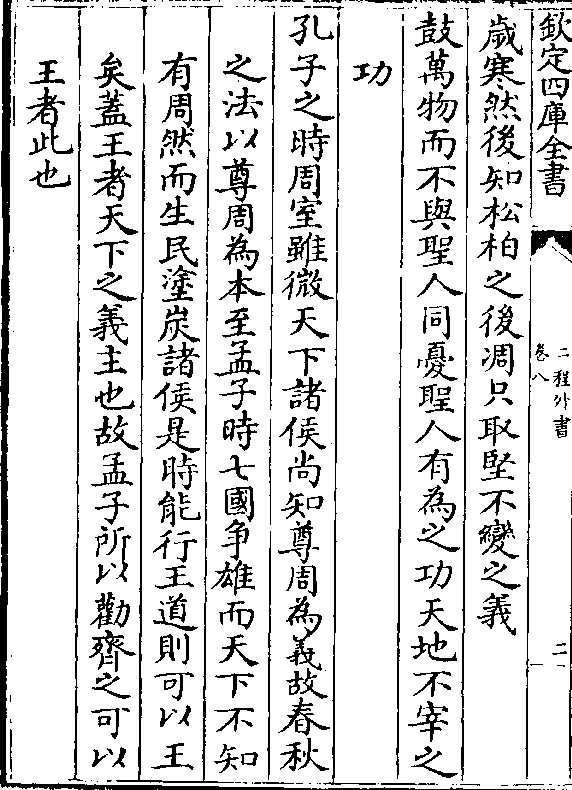 欽定四庫全書
二程外書
卷八
二
歲寒然後知松柏之後凋只取堅不變之義
鼓萬物而不與聖人同憂聖人有為之功天地不宰之
功
孔子之時周室雖微天下諸侯尚知尊周為義故春秋
之法以尊周為本至孟子時七國争雄而天下不知
有周然而生民塗炭諸侯是時能行王道則可以王
矣蓋王者天下之義主也故孟子所以勸齊之可以
王者此也